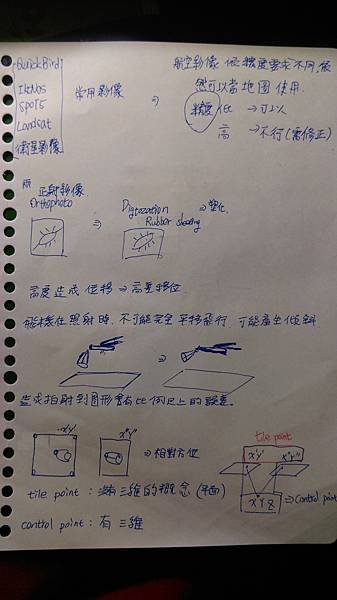 QuickBird
IkNos
SPOT5
Landsat
衛星影像
常用影像 ⇒
航空影像 依 精度要求不同,依
然可以當地圖使用.
精度 低 → 可以
高 → 不行(需修正)
正射影像
Orthophoto
⇒
Digitization
Rubber sheeting
⇒ 數化
高度造成位移 ⇒ 高差移位
飛機在照射時,不可能完全平移飛行,可能產生傾斜
⇒
造成拍射到圖形會有比例尺上的誤差。
x'y'
x"y"
⇒ 相對方位
tile point
x'y'
x"y"
XYZ
⇒ Control point
tile point : 沒有三維的概念 (平面)
control point : 有三維